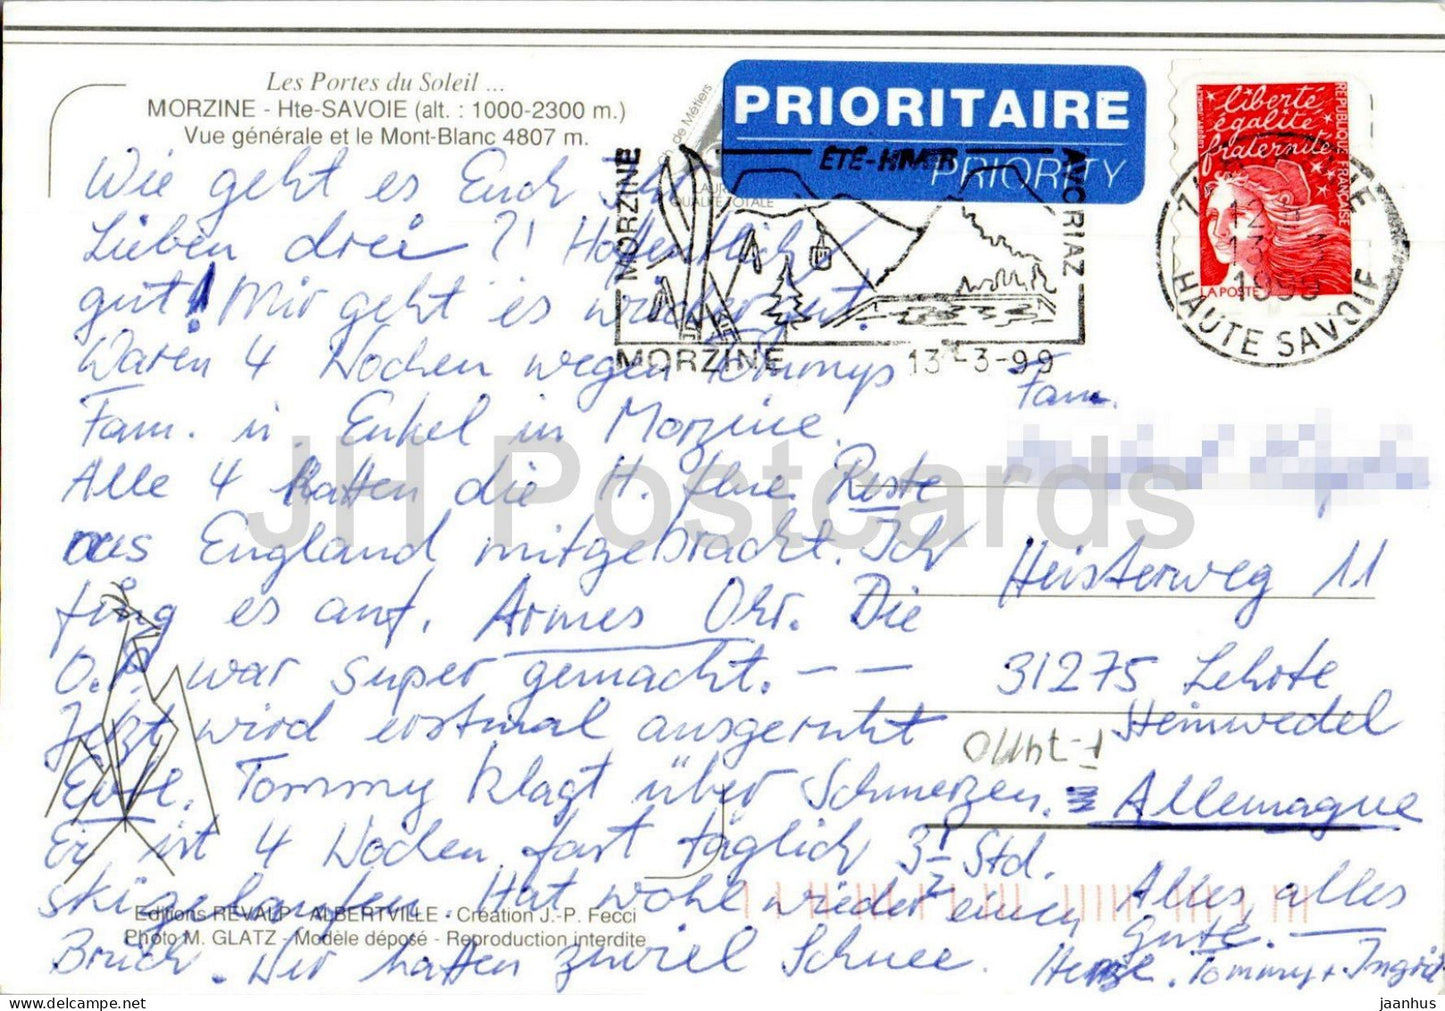 Les Portes du Soleil ...
MORZINE - Hte-SAVOIE (alt. : 1000-2300 m.)
Vue générale et le Mont-Blanc 4807 m.
PRIORITAIRE
PRIORITY
ÉTÉ-HIVER
MORZINE
AVORIAZ
MORZINE
13-3-99
QUALITÉ TOTALE
de Métiers
liberté
égalité
fraternité
RÉPUBLIQUE FRANÇAISE
LA POSTE
HAUTE SAVOIE
Wie geht es Euch
Lieben drei ?! Hoffentlich
gut! Mir geht es wieder gut.
Waren 4 Wochen wegen Tommys
Fam. u. Enkel in Morzine.
Alle 4 hatten die H. Reste
aus England mitgebracht. Ich
fing es auf. Armes Ohr. Die
O.P. war super gemacht. — —
Jetzt wird erstmal ausgeruht
Ende. Tommy klagt über Schmerzen.
Er ist 4 Wochen fast täglich 3-½ Std.
skigelaufen. Hat wohl wieder einen
Bruch. Wir hatten zuviel Schnee.
Alles, alles
Gute. —
Tommy + Ingrid
Fam.
Heisterweg 11
31275 Lehrte
Steinwedel
Allemagne
F-74110
Editions REVALP - ALBERTVILLE - Création J.-P. Fecci
Photo M. GLATZ - Modèle déposé - Reproduction interdite
JH Postcards
jaanhus